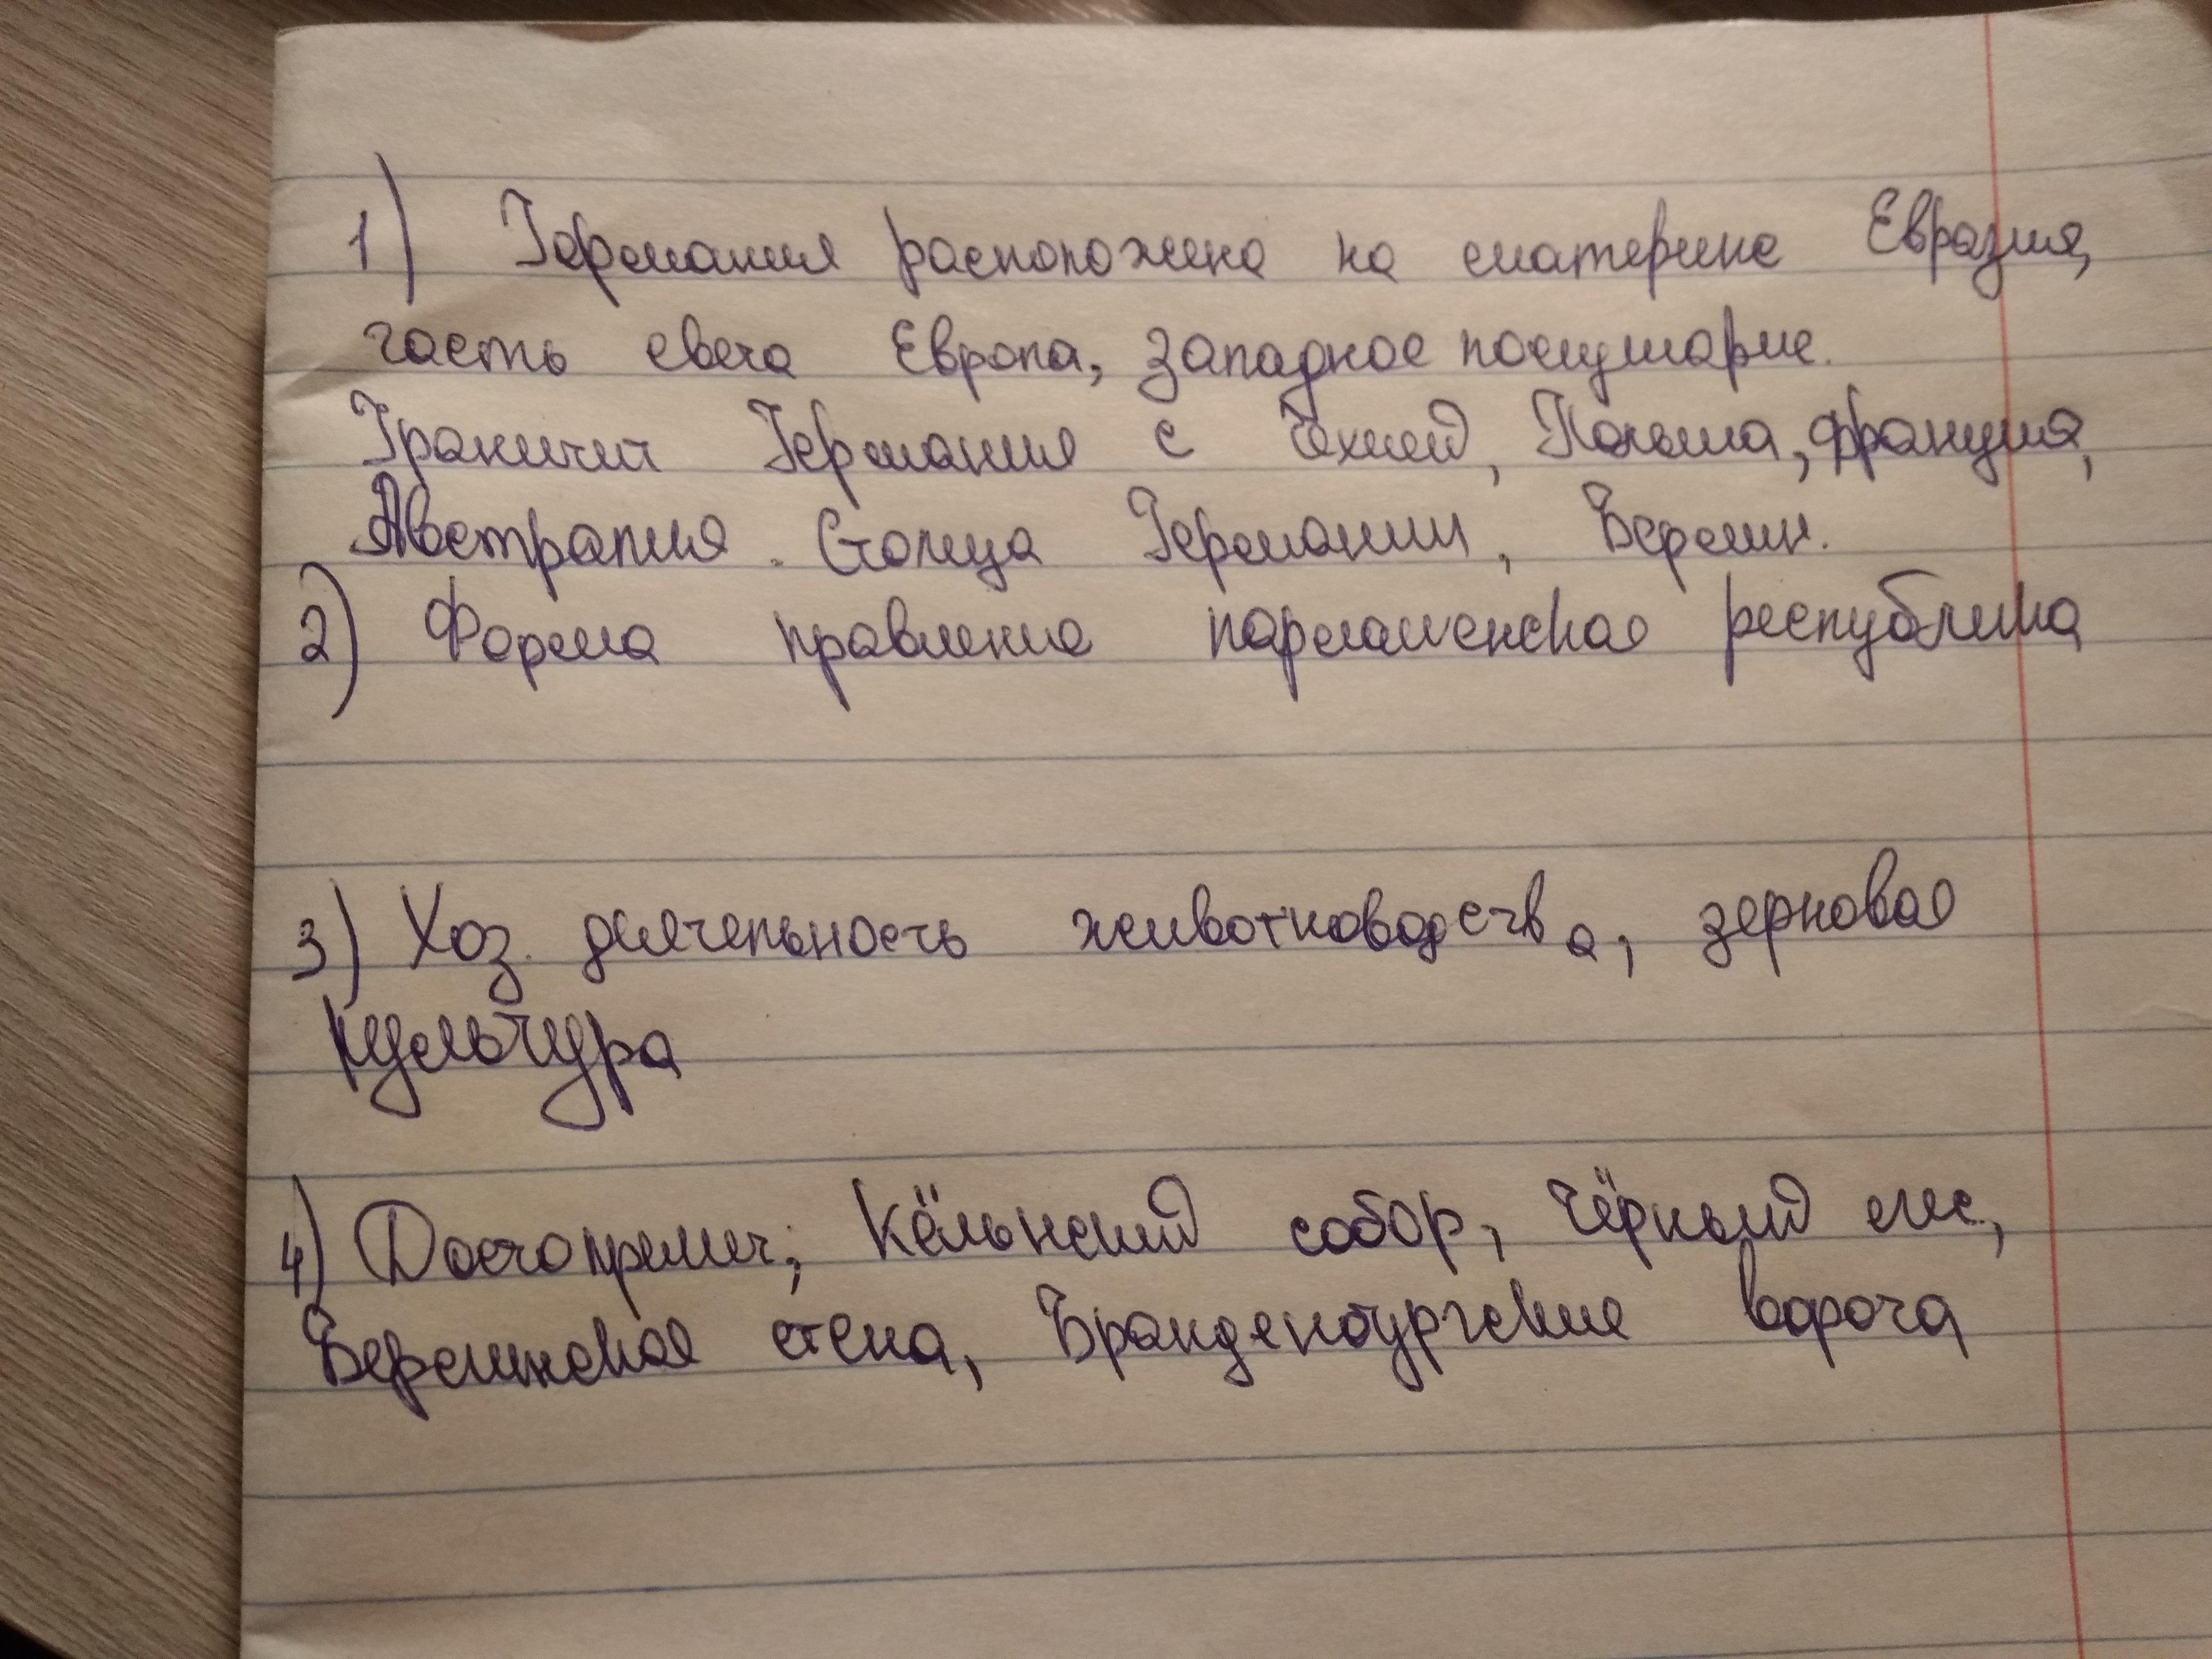 1) Германия расположена на материке Евразия,
часть света Европа, западное полушарие.
Граничит Германия с Чехией, Польша, Франция,
Австралия. Столица Германии, Берлин.
2) Форма правление парламенская республика
3) Хоз. деятельность животноводства, зерновая
культура
4) Достопремеч; Кёльнский собор, Чёрный лес,
Берлинская стена, Бранденбургские ворота